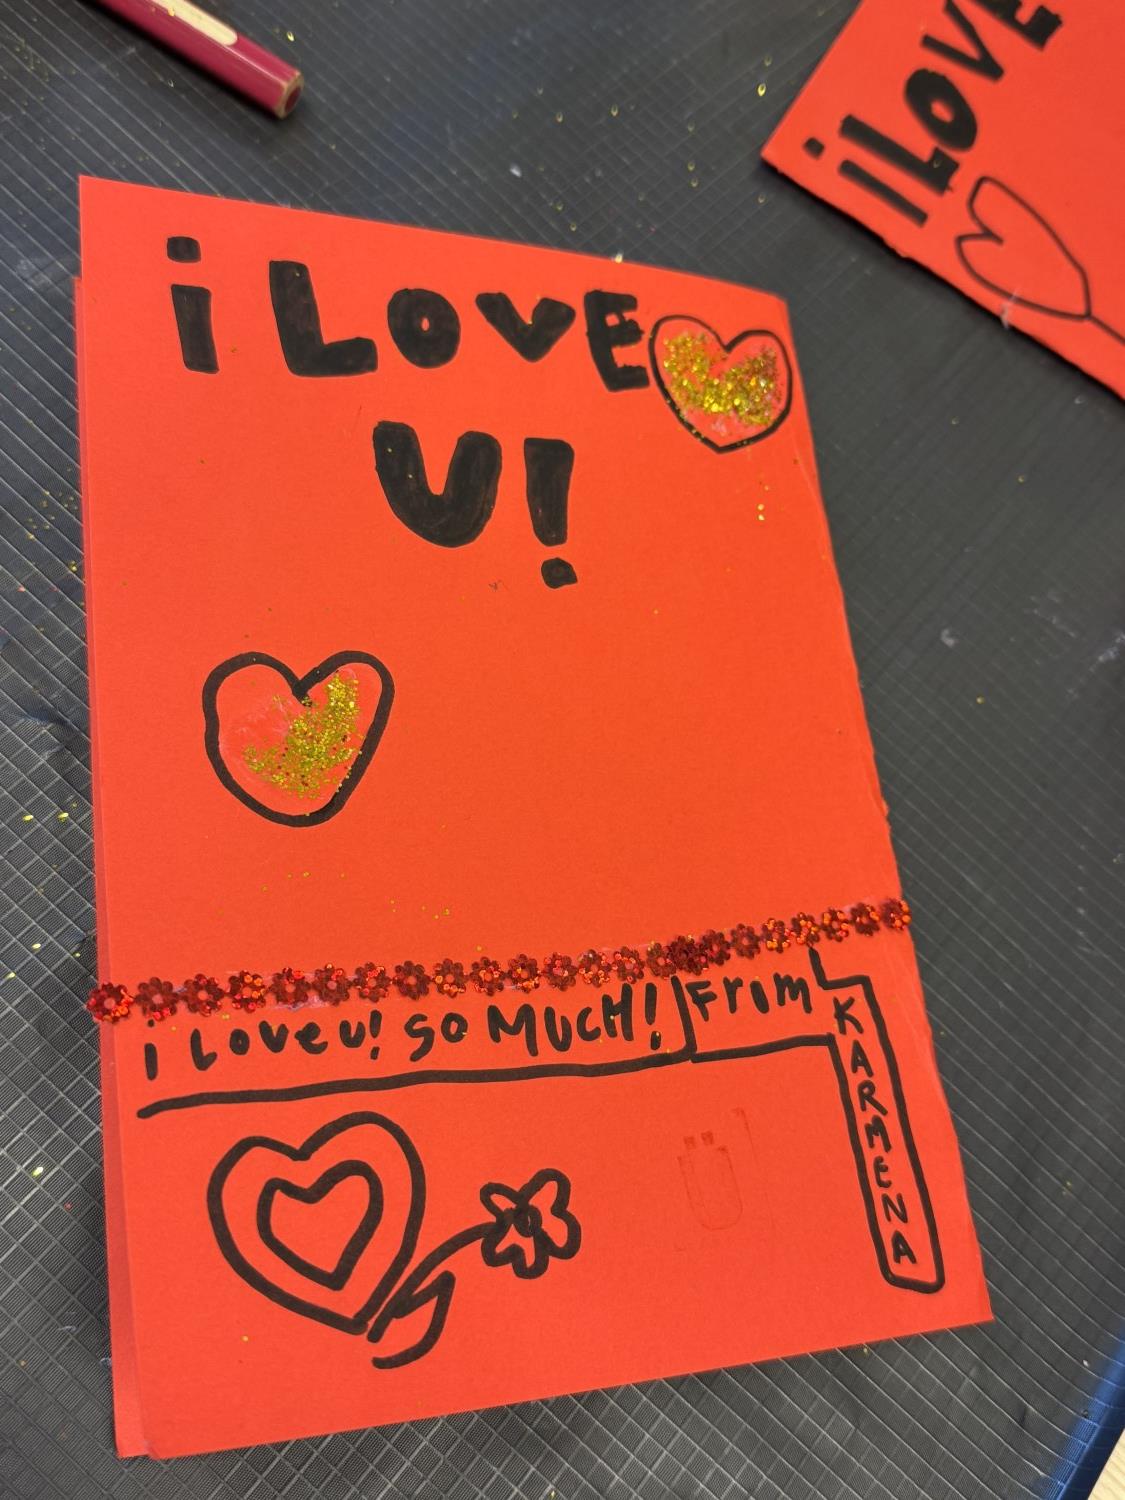 i LOVE
U!
i Love u! so MUCH! From
KARMENA
i LOVE